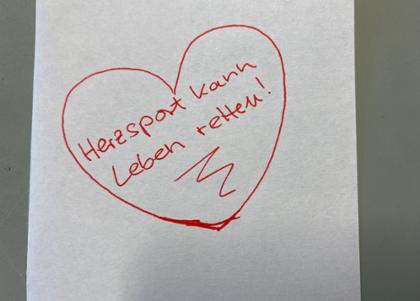 Herzsport kann
Leben retten!